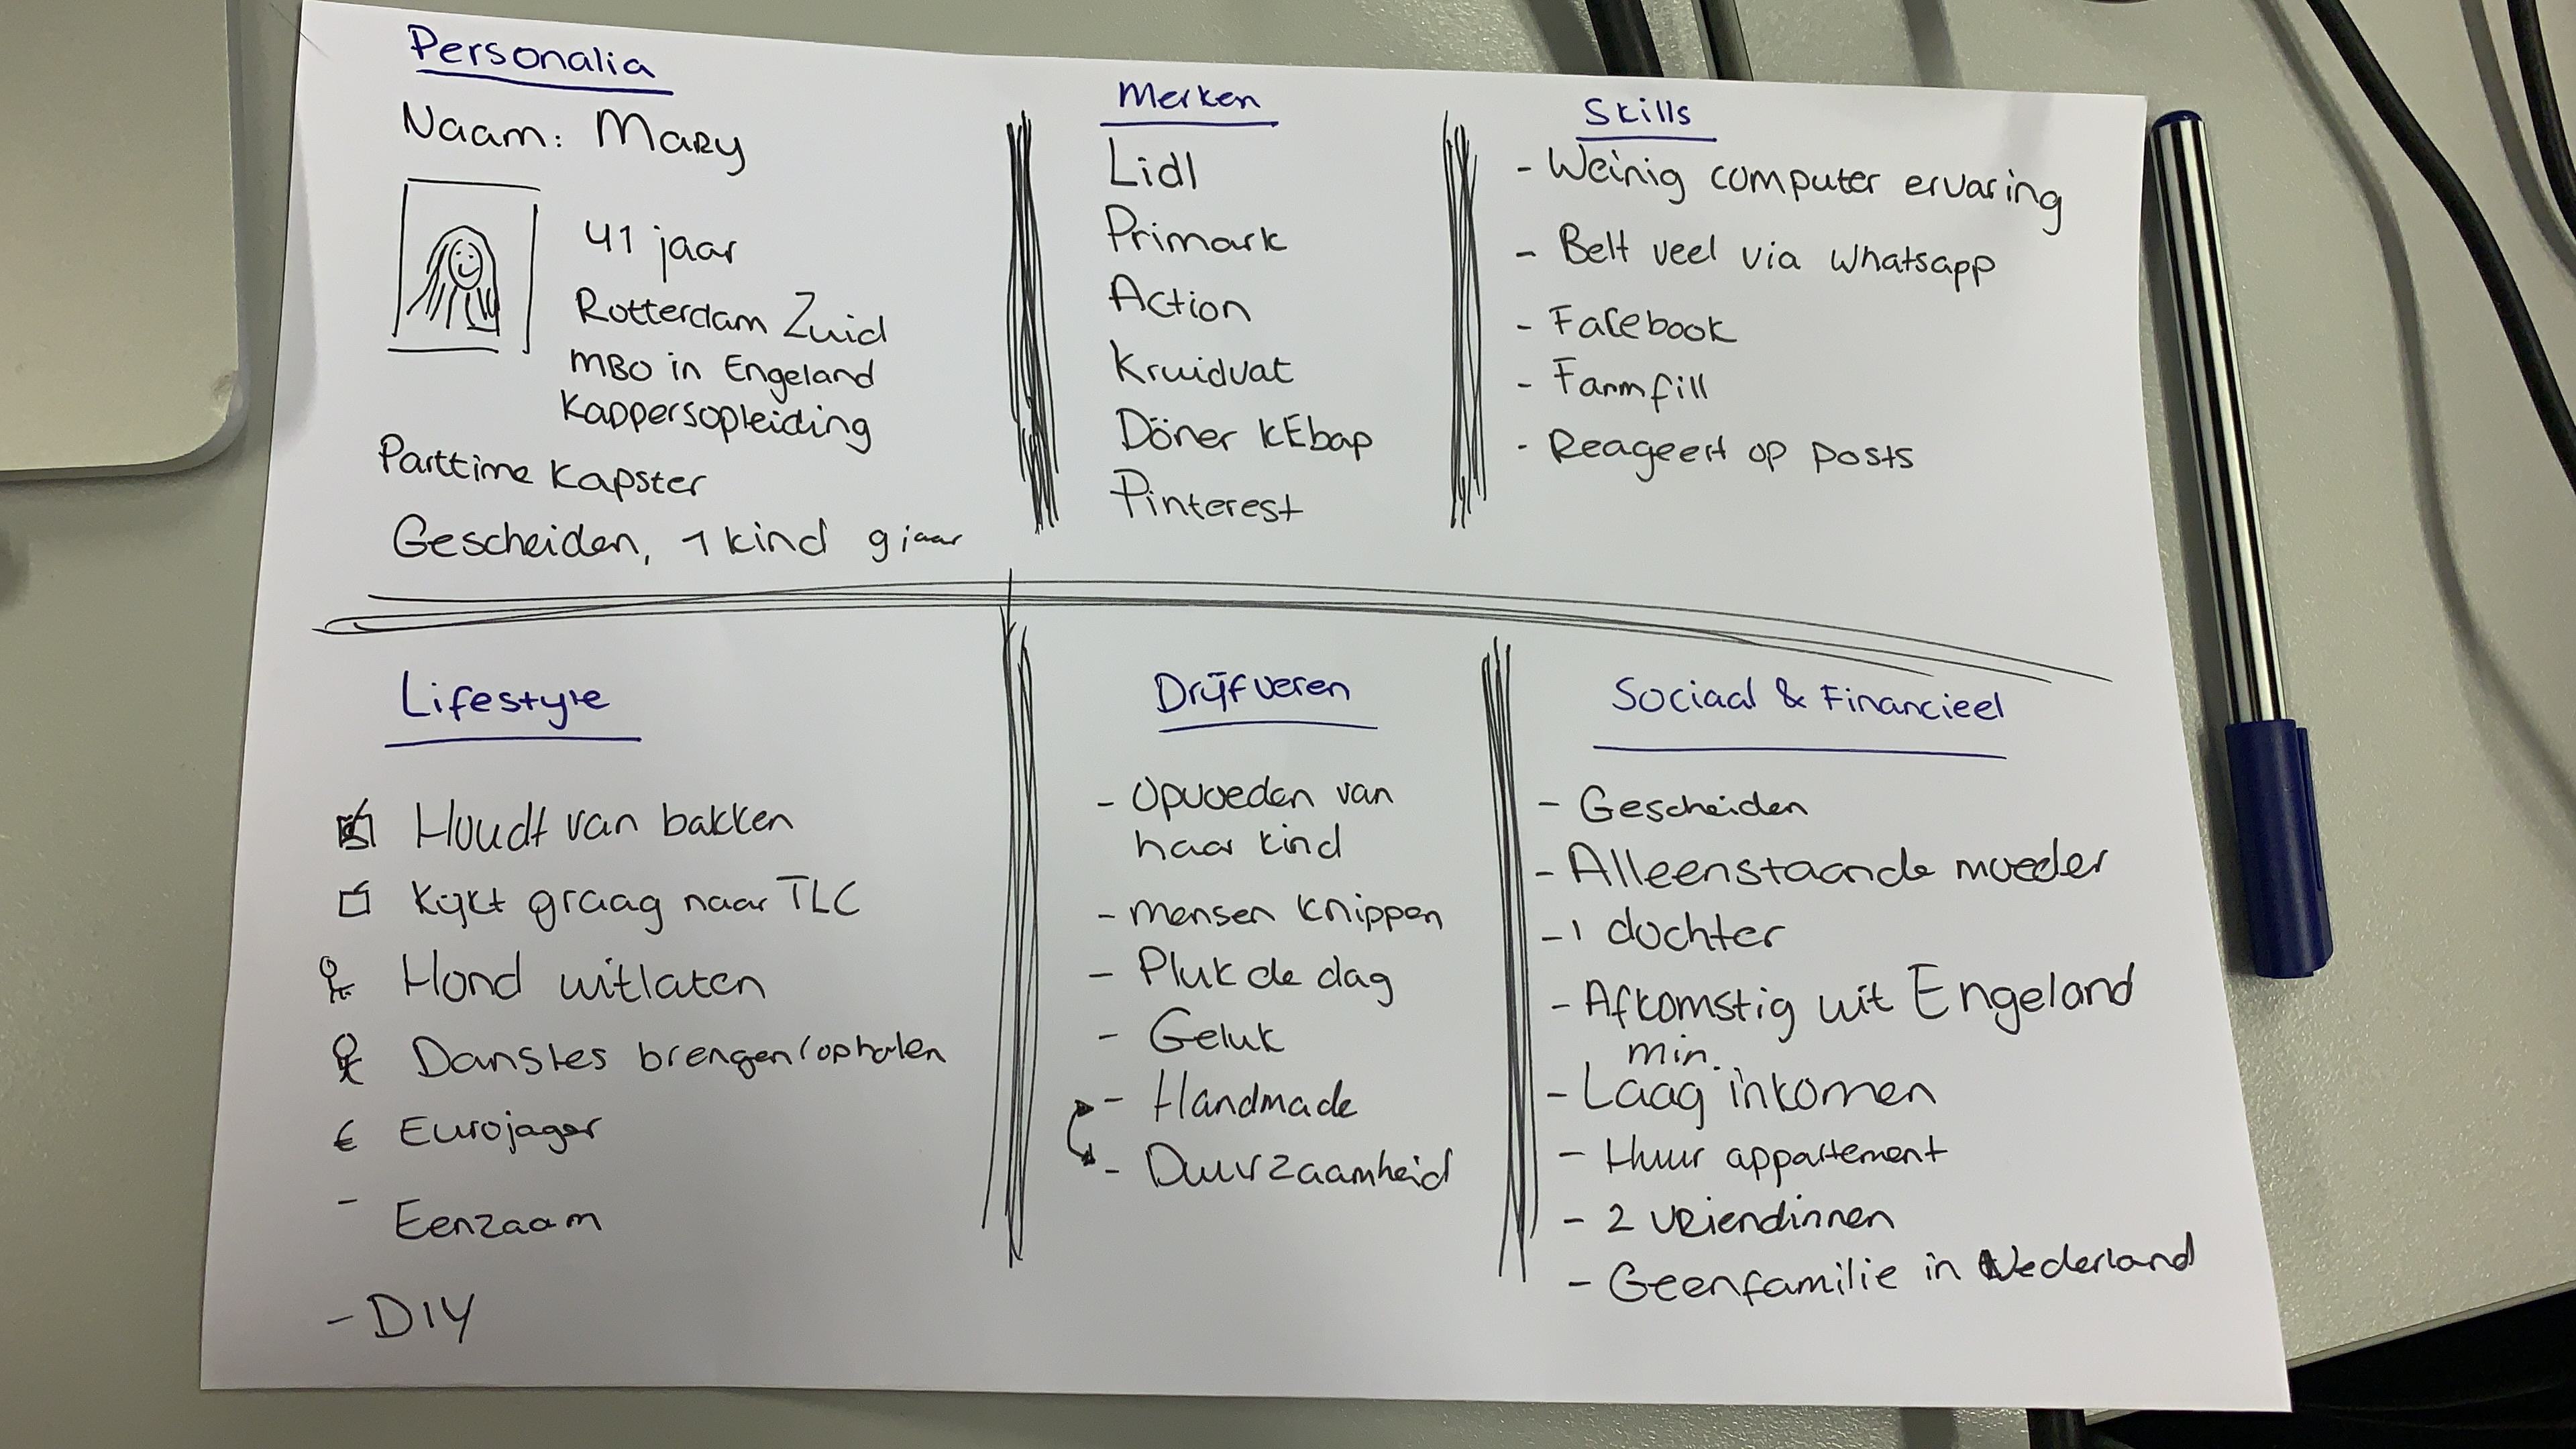 Personalia
Naam: Mary
41 jaar
Rotterdam Zuid
MBO in Engeland
Kappersopleiding
Parttime Kapster
Gescheiden, 1 kind 9 jaar
Merken
Lidl
Primark
Action
Kruidvat
Döner kEbap
Pinterest
Skills
- Weinig computer ervaring
- Belt veel via whatsapp
- Facebook
- Farmfill
- Reageert op posts
Lifestyle
Houdt van bakken
Kijkt graag naar TLC
Hond uitlaten
Dansles brengen/ophalen
€ Eurojager
- Eenzaam
- DIY
Drijfveren
- Opvoeden van
haar kind
- mensen knippen
- Pluk de dag
- Geluk
- Handmade
- Duurzaamheid
Sociaal & Financieel
- Gescheiden
- Alleenstaande moeder
- 1 dochter
- Afkomstig uit Engeland
min.
- Laag inkomen
- Huur appartement
- 2 vriendinnen
- Geen familie in Nederland